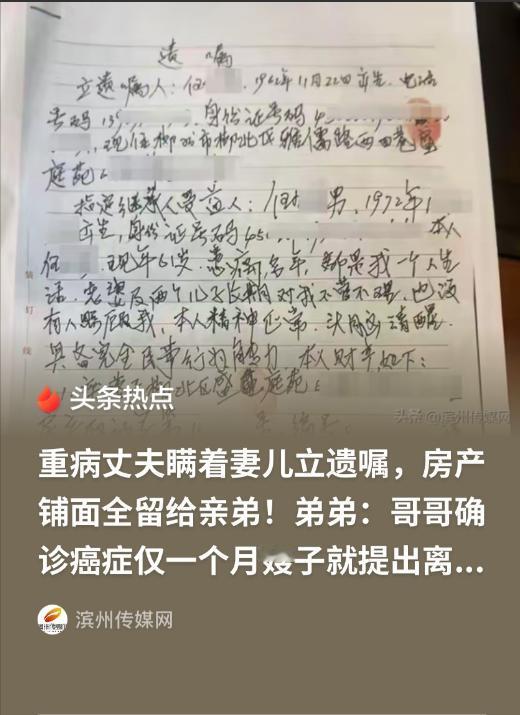 遗 嘱
立遗嘱人：任 1962年11月22日出生. 电话
号码 13 身份证号码4
现住柳州市柳北区雅儒路西四巷
庭苑
指定继承人受益人：任 男，1972年1
出生，身份证号码45 本人
任 现年61岁. 患病多年，都是我一个人生
活. 妻及两个儿子长期对我不管不理. 也没
有人照顾我，本人精神正常. 头脑清醒.
具备完全民事行为能力. 本人财产如下：
装
订
线
北区 庭苑
头条热点
头条 @滨州传媒网
重病丈夫瞒着妻儿立遗嘱，房产
铺面全留给亲弟！弟弟：哥哥确
诊癌症仅一个月嫂子就提出离...
滨州传媒网